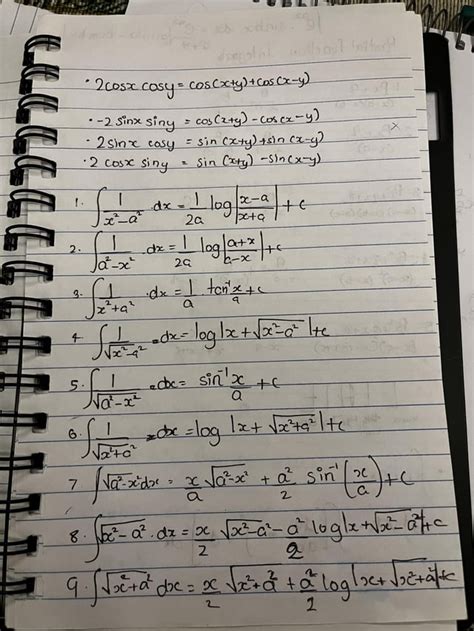 • 2cosx cosy = cos(x+y)+cos(x-y)
• -2 sinx siny = cos(x+y) - cos(x-y)
• 2 sinx cosy = sin (x+y)+sin(x-y)
• 2 cosx siny = sin (x+y) -sin(x-y)
1. ∫ 1/(x²-a²) dx = 1/2a log|(x-a)/(x+a)| + c
2. ∫ 1/(a²-x²) .dx = 1/2a log|(a+x)/(a-x)| + c
3. ∫ 1/(x²+a²) .dx = 1/a tan⁻¹ x/a + c
4. ∫ 1/√(x²-a²) .dx = log|x+√(x²-a²)|+c
5. ∫ 1/√(a²-x²) .dx = sin⁻¹ x/a + c
6. ∫ 1/√(x²+a²) .dx = log |x+√(x²+a²)|+c
7 ∫√(a²-x²) dx = x/a √(a²-x²) + a²/2 sin⁻¹(x/a) + c
8. ∫√(x²-a²) .dx = x/2 √(x²-a²) - a²/2 log|x+√(x²-a²)|+c
9. ∫√(x²+a²) dx = x/2 √(x²+a²) + a²/2 log|x+√(x²+a²)|+c